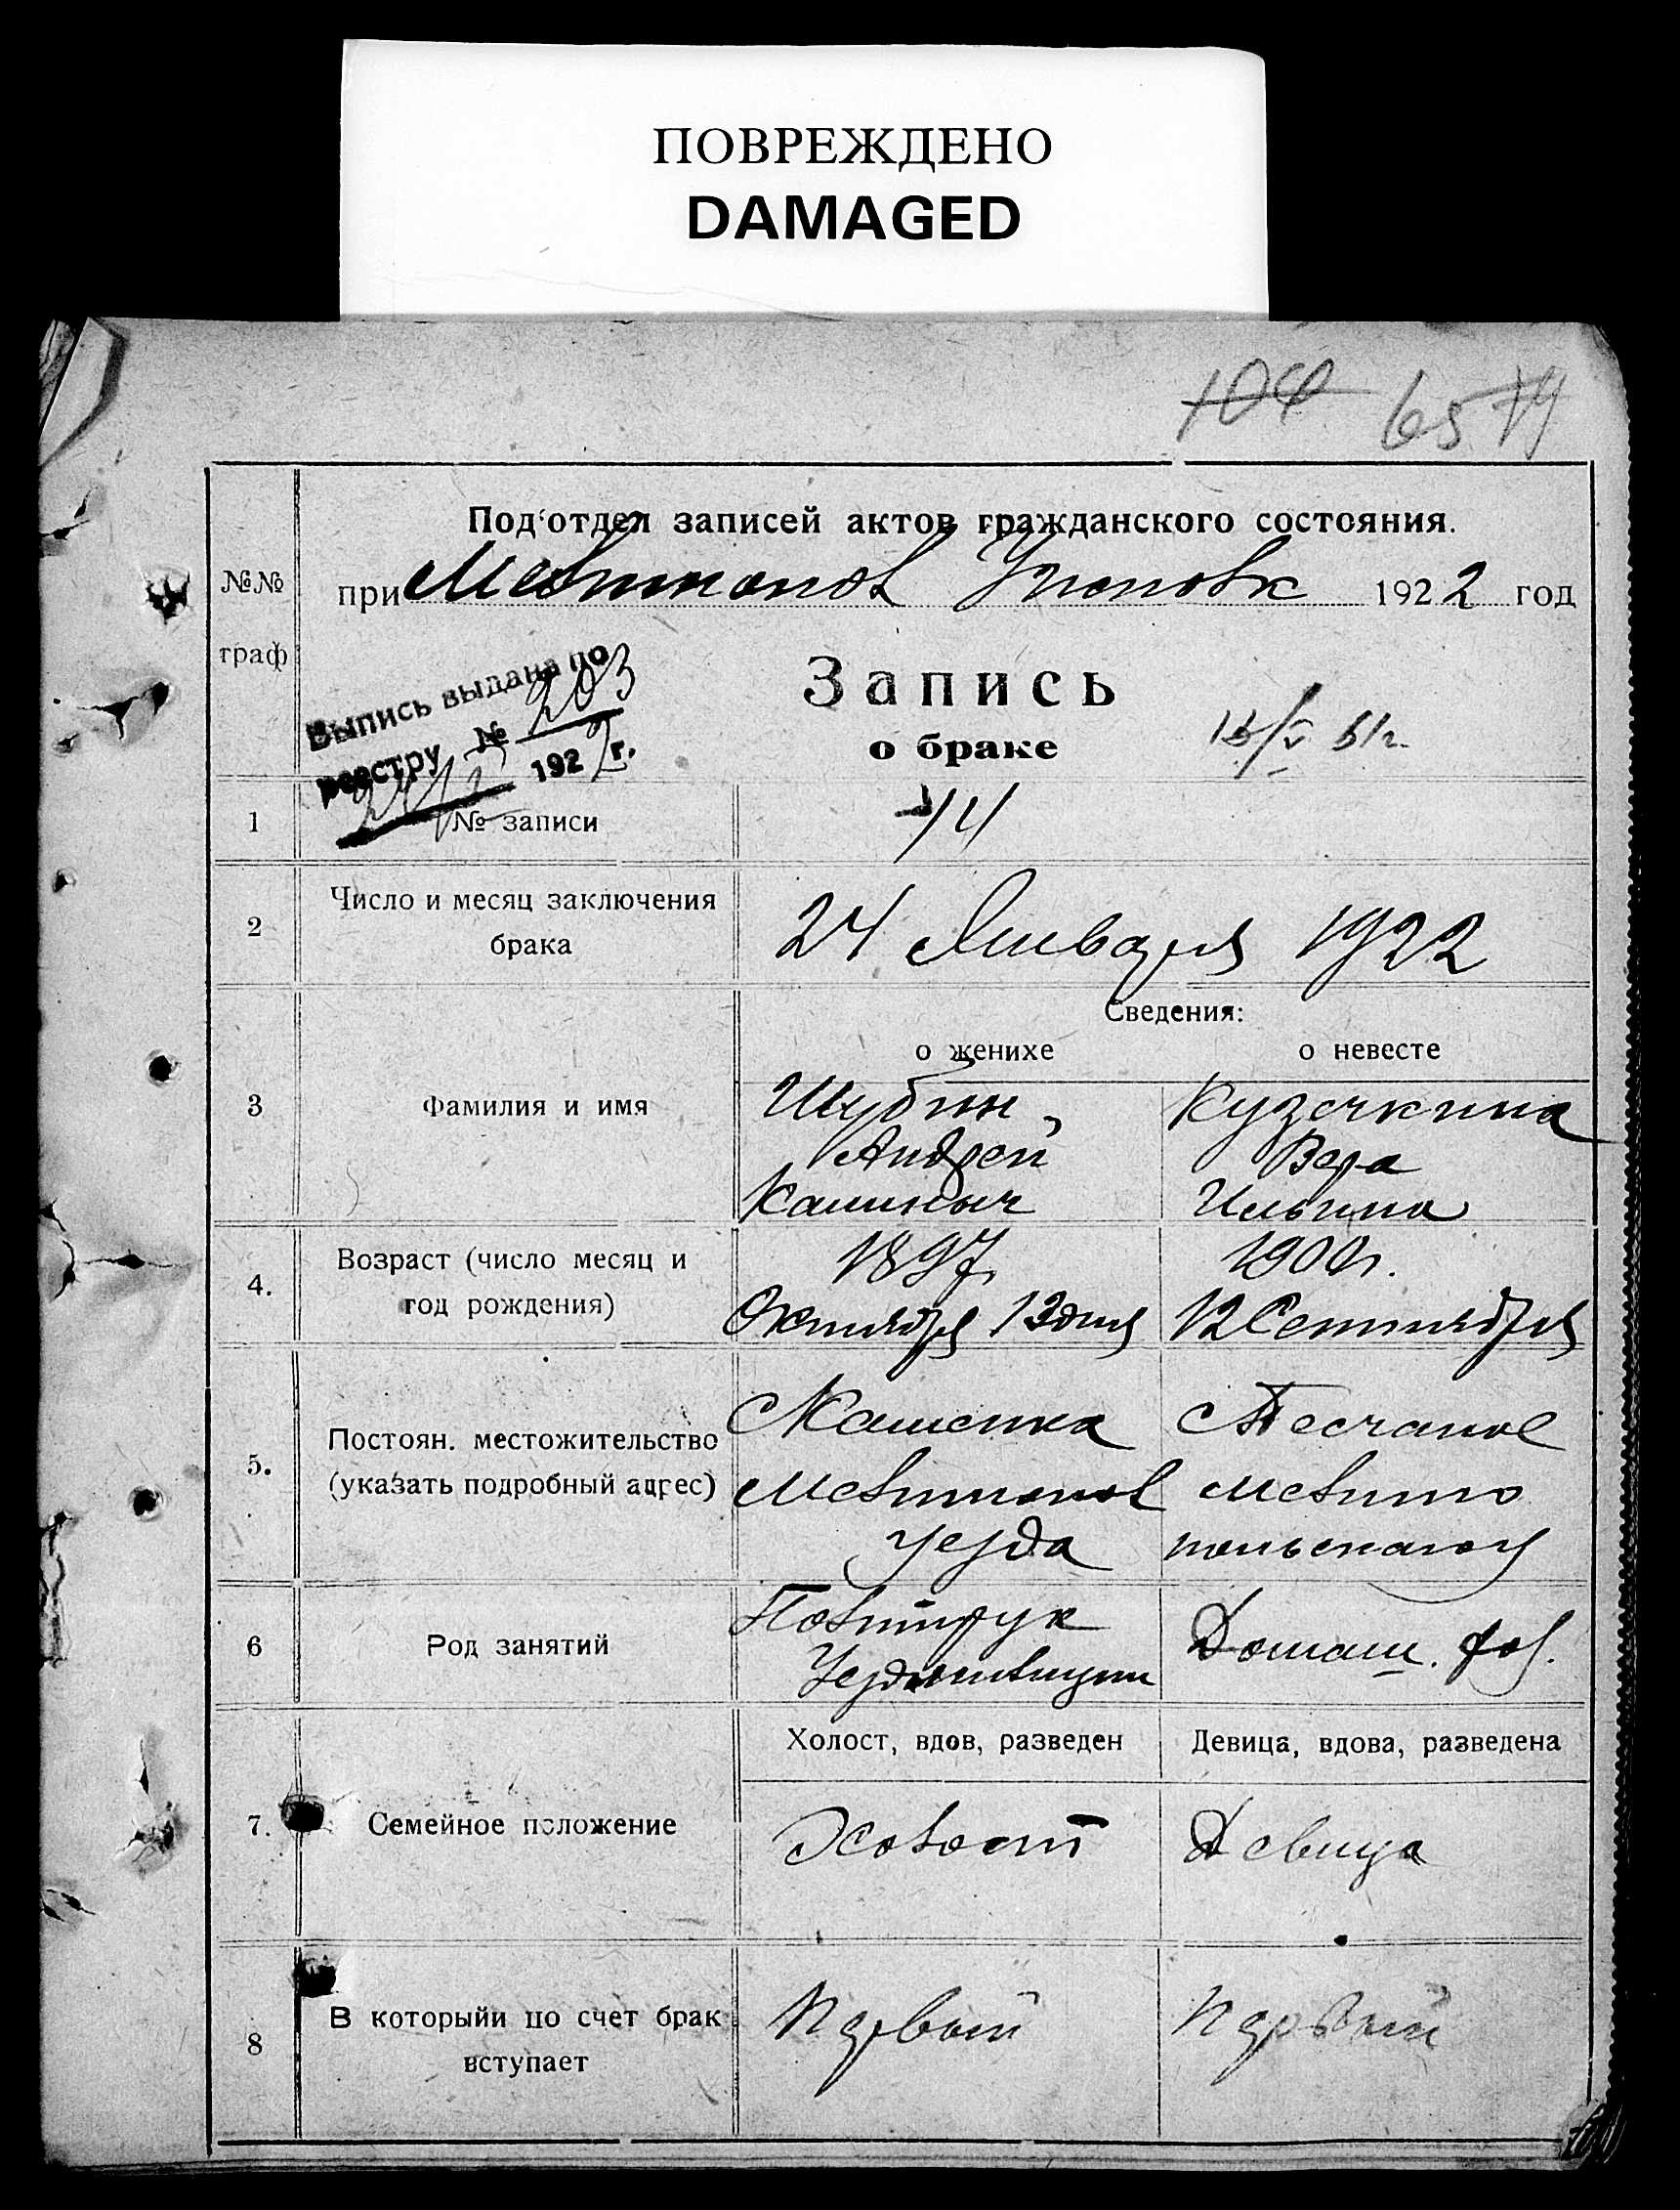 ПОВРЕЖДЕНО
DAMAGED
104 65 74
Под'отдел записей актов гражданского состояния.
№№ граф
при Мелитопол Уисполк 1922 год
Выпись выдана по
реестру № 203
192 г.
Запись
о браке
1 № записи
2 Число и месяц заключения брака 24 Января 1922
Сведения:
о женихе о невесте
3 Фамилия и имя
Шубин Кузечкина
Андрей Вера
Ильина
4. Возраст (число месяц и год рождения)
1897 1900г.
Октября 13 дня 12 Сентября
5. Постоян. местожительство (указать подробный адрес)
Песчаное
Мелитопол Мелито
уезда польскаго у
6 Род занятий
Политрук Домаш. раб.
Уездмилиции
Холост, вдов, разведен Девица, вдова, разведена
7. Семейное положение
Холост Девица
8 В которыйи по счет брак вступает
Первый Первый